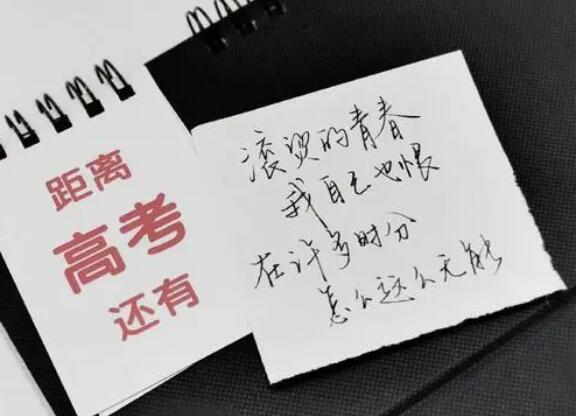 距离
高考
还有
滚烫的青春
我自己也恨
在许多时分
怎么这么无能